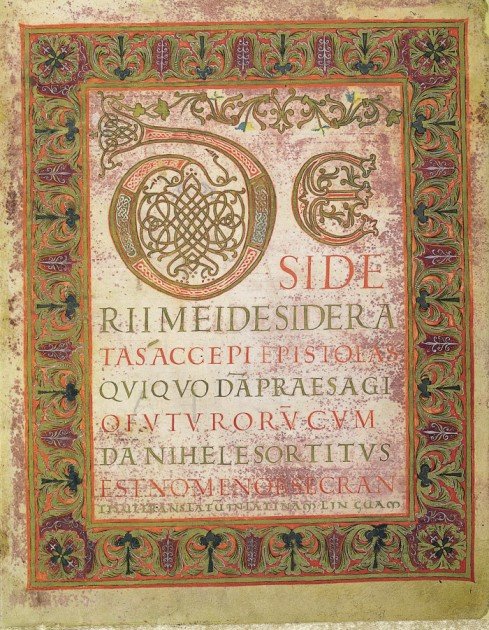 DE
SIDE
RII MEI DESIDERA
TAS ACCEPI EPISTOLAS
QVI QVODĀ PRAESAGI
O FVTVRORŪ CVM
DANIHELE SORTITVS
EST NOMEN OBSECRAN
TIS UT TRANSLATŪ IN LATINAM LINGUAM